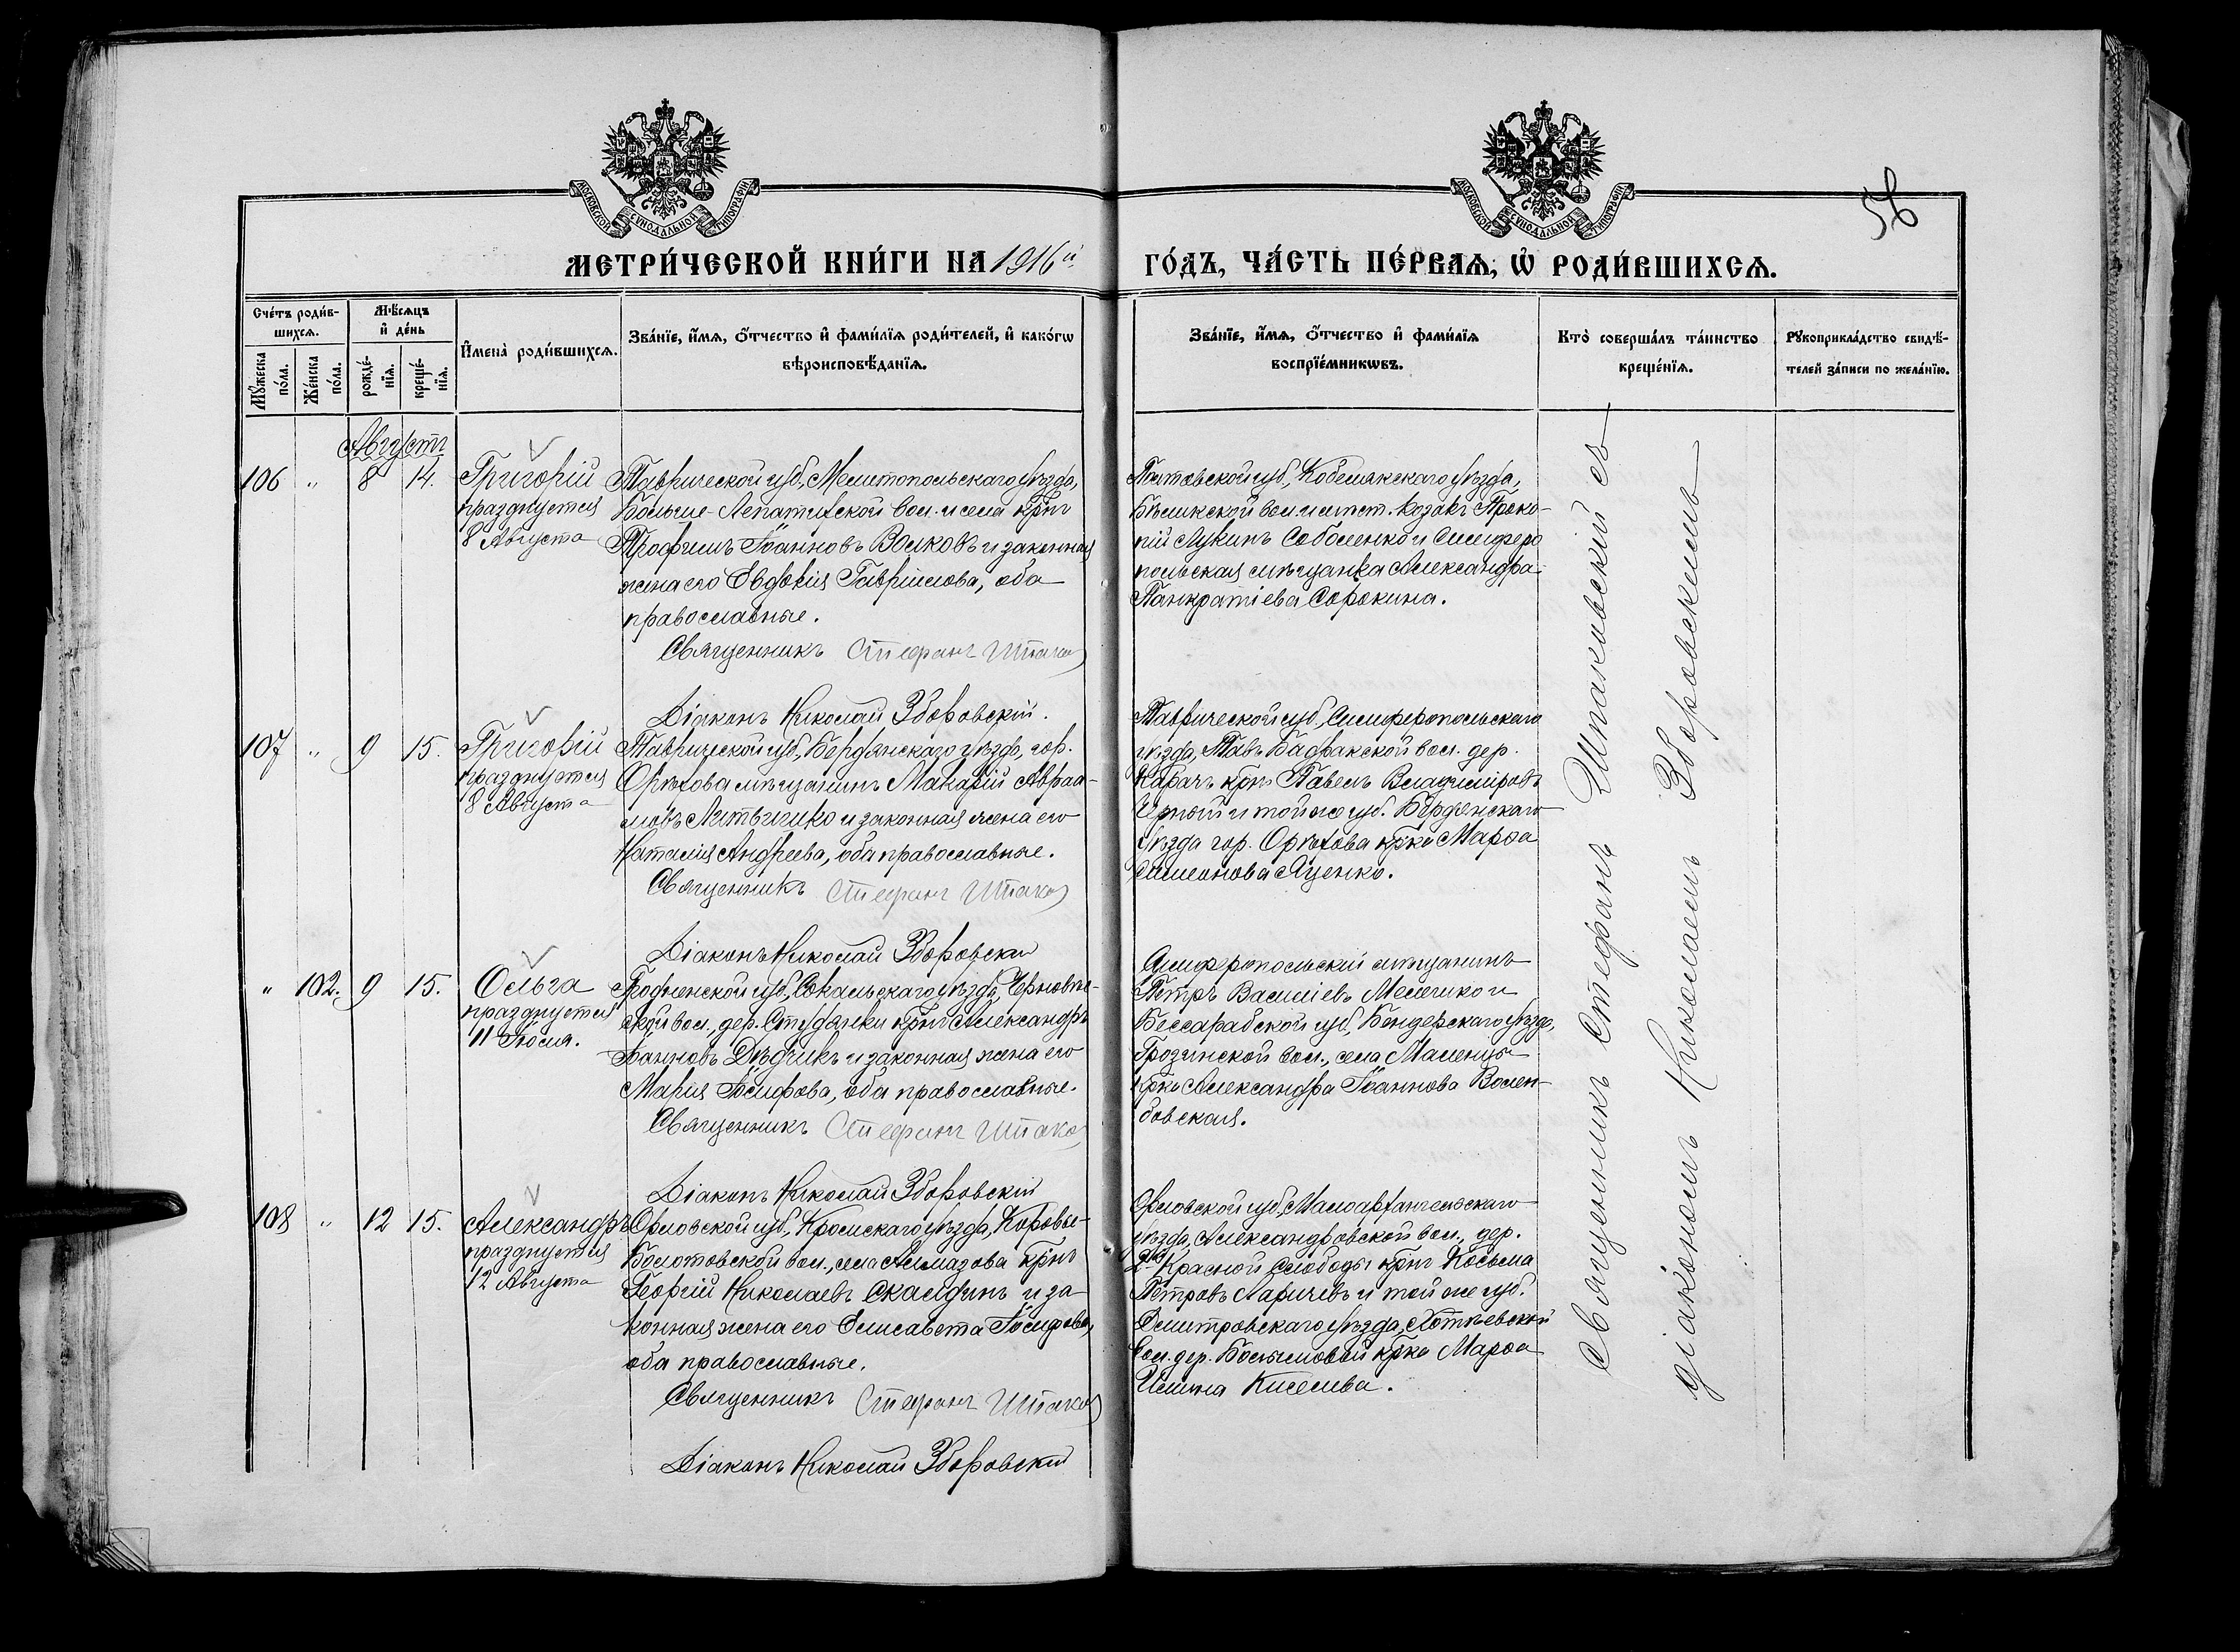 МОСКОВСКОЙ СѴНОДАЛЬНОЙ ТИПОГРАФІИ
МОСКОВСКОЙ СѴНОДАЛЬНОЙ ТИПОГРАФІИ
56
МЕТРИ́ЧЕСКОЙ КНИ́ГИ НА 1916й
ГО́ДЪ, ЧА́СТЬ ПЕ́РВАѦ, Ѡ҆ РОДИ́ВШИХСѦ.
Сче́тъ роди́в-
шихсѧ.
Мꙋ́жеска
по́ла.
Же́нска
по́ла.
Мѣ́сѧцъ
и҆ де́нь
рожде́-
нїѧ.
креще́-
нїѧ.
И҆мена̀ роди́вшихсѧ.
Зва́нїе, и҆́мѧ, ѻ҆́тчество и҆ фами́лїѧ роди́телей, и҆ како́гѡ
вѣроисповѣ́данїѧ.
Зва́нїе, и҆́мѧ, ѻ҆́тчество и҆ фами́лїѧ
воспрїе́мникѡвъ.
Кто̀ соверша́лъ та́инство
креще́нїѧ.
Рꙋкоприкла́дство свидѣ́-
телей за́писи по жела́нїю.
Августъ
106 " 8 14.
Григорій
празднуется
8 Августа
Таврической губ., Мелитопольскаго уѣзда,
Больше-Лепатихской вол. и села крнъ
Трофимъ Іоанновъ Волковъ и законная
жена его Евдокія Гавріилова, оба
православные.
Священникъ Стефанъ Шпака
Діаконъ Николай Зборовскій.
Полтавской губ., Кобелякскаго уѣзда,
Бѣликской вол. и мѣст. козакъ Проко-
пій Лукинъ Соболенко и Симферо
польская мѣщанка Александра
Панкратіева Сорокина.
107 " 9 15.
Григорій
празднуется
8 Августа
Таврической губ., Бердянскаго уѣзда, гор.
Орѣхова мѣщанинъ Макарій Авраа-
мовъ Литвишко и законная жена его
Наталія Андреева, оба православные.
Священникъ Стефанъ Шпака
Діаконъ Николай Зборовскій
Таврической губ., Симферопольскаго
уѣзда, Тав. Бадракской вол. дер.
Карачъ крнъ Павелъ Владиміровъ
Черный и той же губ. Бердянскаго
уѣзда гор. Орѣхова крка Марѳа
Симеонова Яценко.
" 102. 9 15.
Ольга
празднуется
11 Іюля.
Гродненской губ., Сокальскаго уѣзда,
вол., дер. Студянки крнъ Александръ
Іоанновъ Дѣдчикъ и законная жена его
Марія Іосифова, оба православные.
Священникъ Стефанъ Шпака
Діаконъ Николай Зборовскій
Симферопольскій мѣщанинъ
Петръ Василіевъ Мелешко и
Бессарабской губ., Бендерскаго уѣзда,
Грозинской вол., села Маленцы
крка Александра Іоаннова Волен-
бовская.
108 " 12 15.
Александръ
празднуется
12 Августа
Орловской губ., Кромскаго уѣзда, Коровье-
Болотовской вол., села Алмазова крнъ
Георгій Николаевъ Скалдинъ и за
конная жена его Елисавета Іосифова,
оба православные.
Священникъ Стефанъ Шпака
Діаконъ Николай Зборовскій
Орловской губ., Малоархангельскаго
уѣзда, Александровской вол., дер.
2й Красной Слободы крнъ Косьма
Петровъ Ларичевъ и той же губ.
Дмитровскаго уѣзда, Лотьевской
вол. дер. крка Марѳа
Ильина Киселева.
Священникъ Стефанъ Шпаковскій съ
діакономъ Николаемъ Зборовскимъ